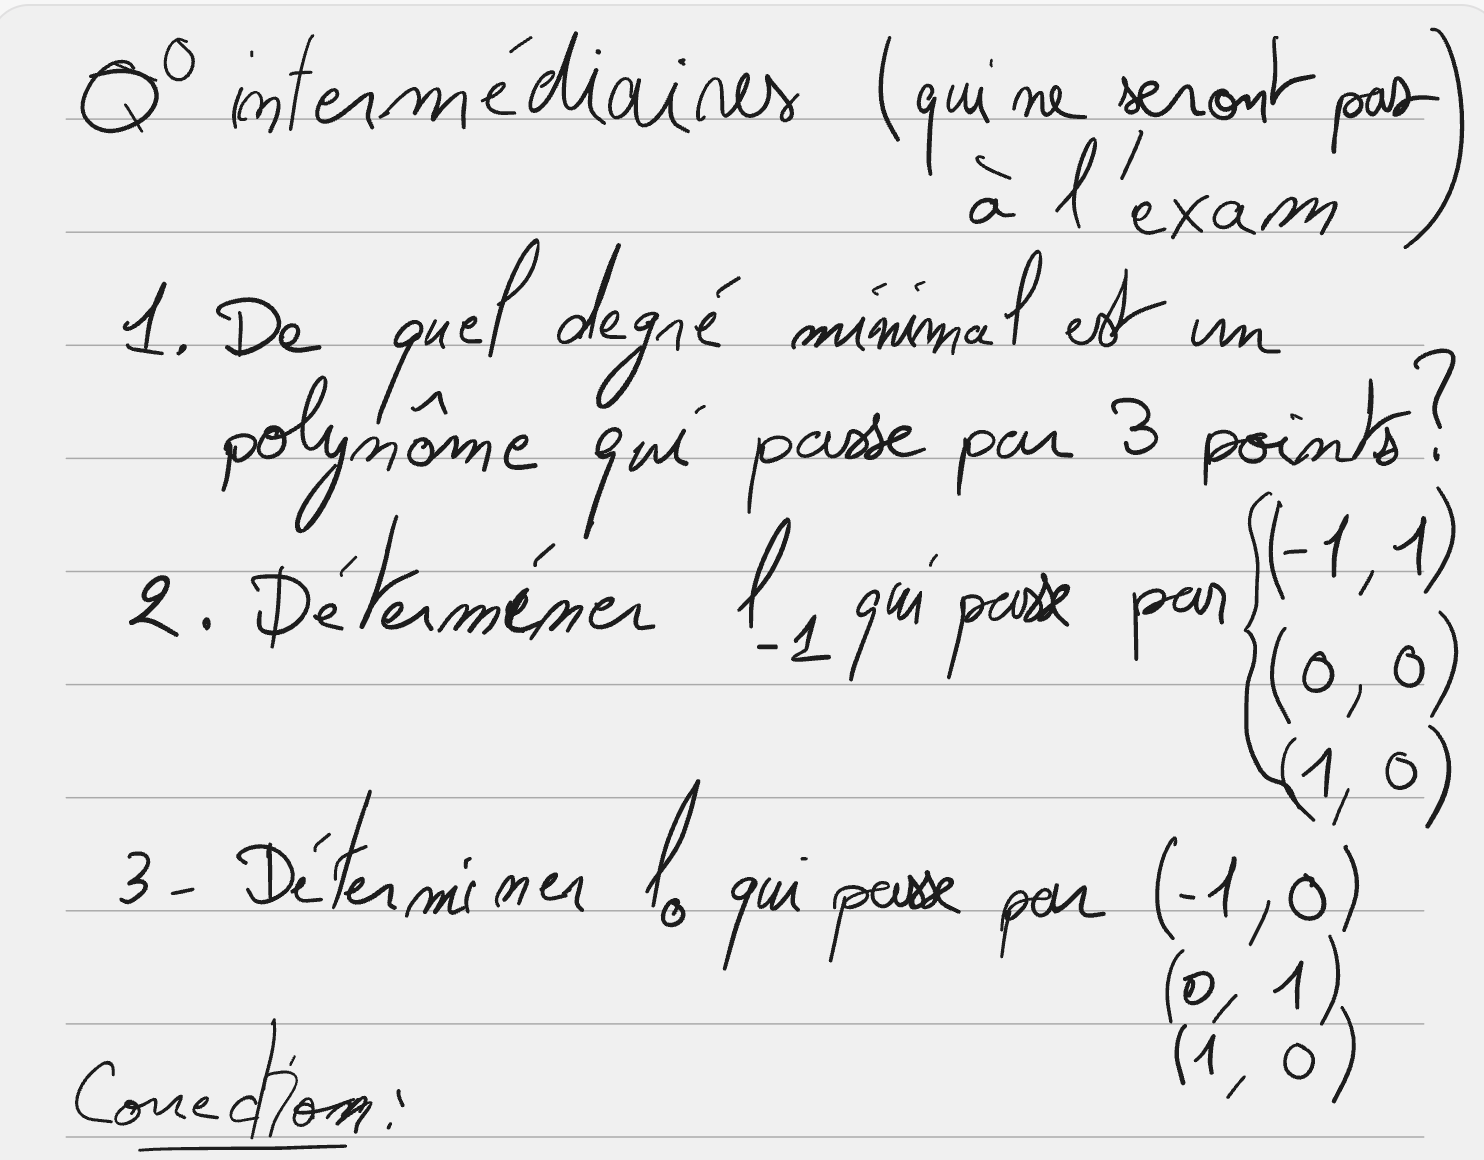 Q° intermédiaires (qui ne seront pas
à l'exam)
1. De quel degré minimal est un
polynôme qui passe par 3 points?
2. Déterminer l₋₁ qui passe par { (-1, 1)
(0, 0)
(1, 0)
3- Déterminer l₀ qui passe par (-1, 0)
(0, 1)
(1, 0)
Correction: